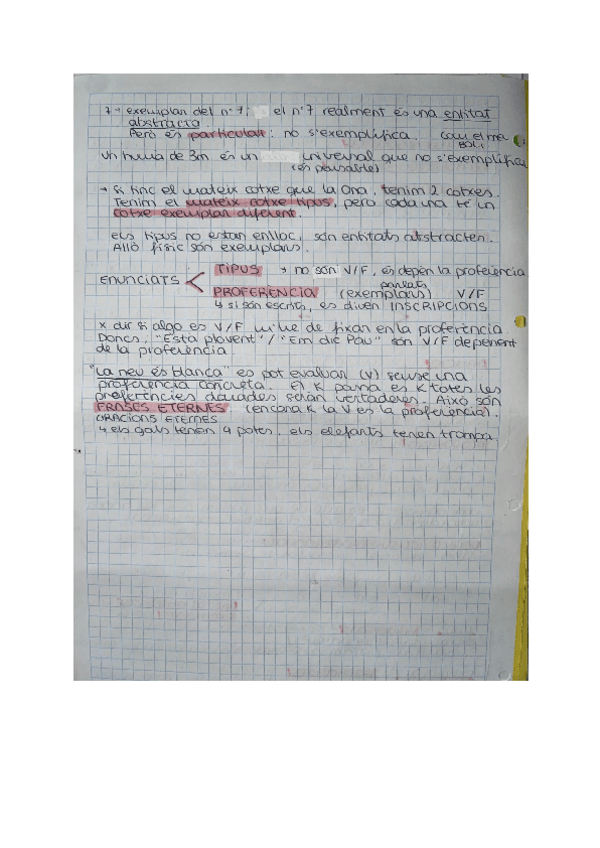 7 → exemplar del nº7; el nº7 realment és una entitat
abstracta.
Però és particular: no s'exemplifica. Com el meu
BOLI
Un humà de 3m és un universal que no s'exemplifica
(és pensable)
→ Si tinc el mateix cotxe que la Ona, tenim 2 cotxes.
Tenim el mateix cotxe tipus, però cada una té un
cotxe exemplar diferent.
Els tipus no estan enlloc, són entitats abstractes.
Allò físic són exemplars.
ENUNCIATS < TIPUS → no són V/F, es depèn la proferència
parlats
PROFERÈNCIA (exemplars) V/F
↳ si són escrits, es diuen INSCRIPCIONS
x dir si algo es V/F m'he de fixar en la proferència
Doncs, "Està plovent"/"Em dic Pau" són V/F depenent
de la proferència.
"La neu és blanca" es pot evaluar (V) sense una
proferència concreta. El K passa es K totes les
proferències d'aquestes seran vertaderes. Això són
FRASES ETERNES (encara K la V es la proferència).
ORACIONS ETERNES
↳ els gats tenen 4 potes, els elefants tenen trompa.